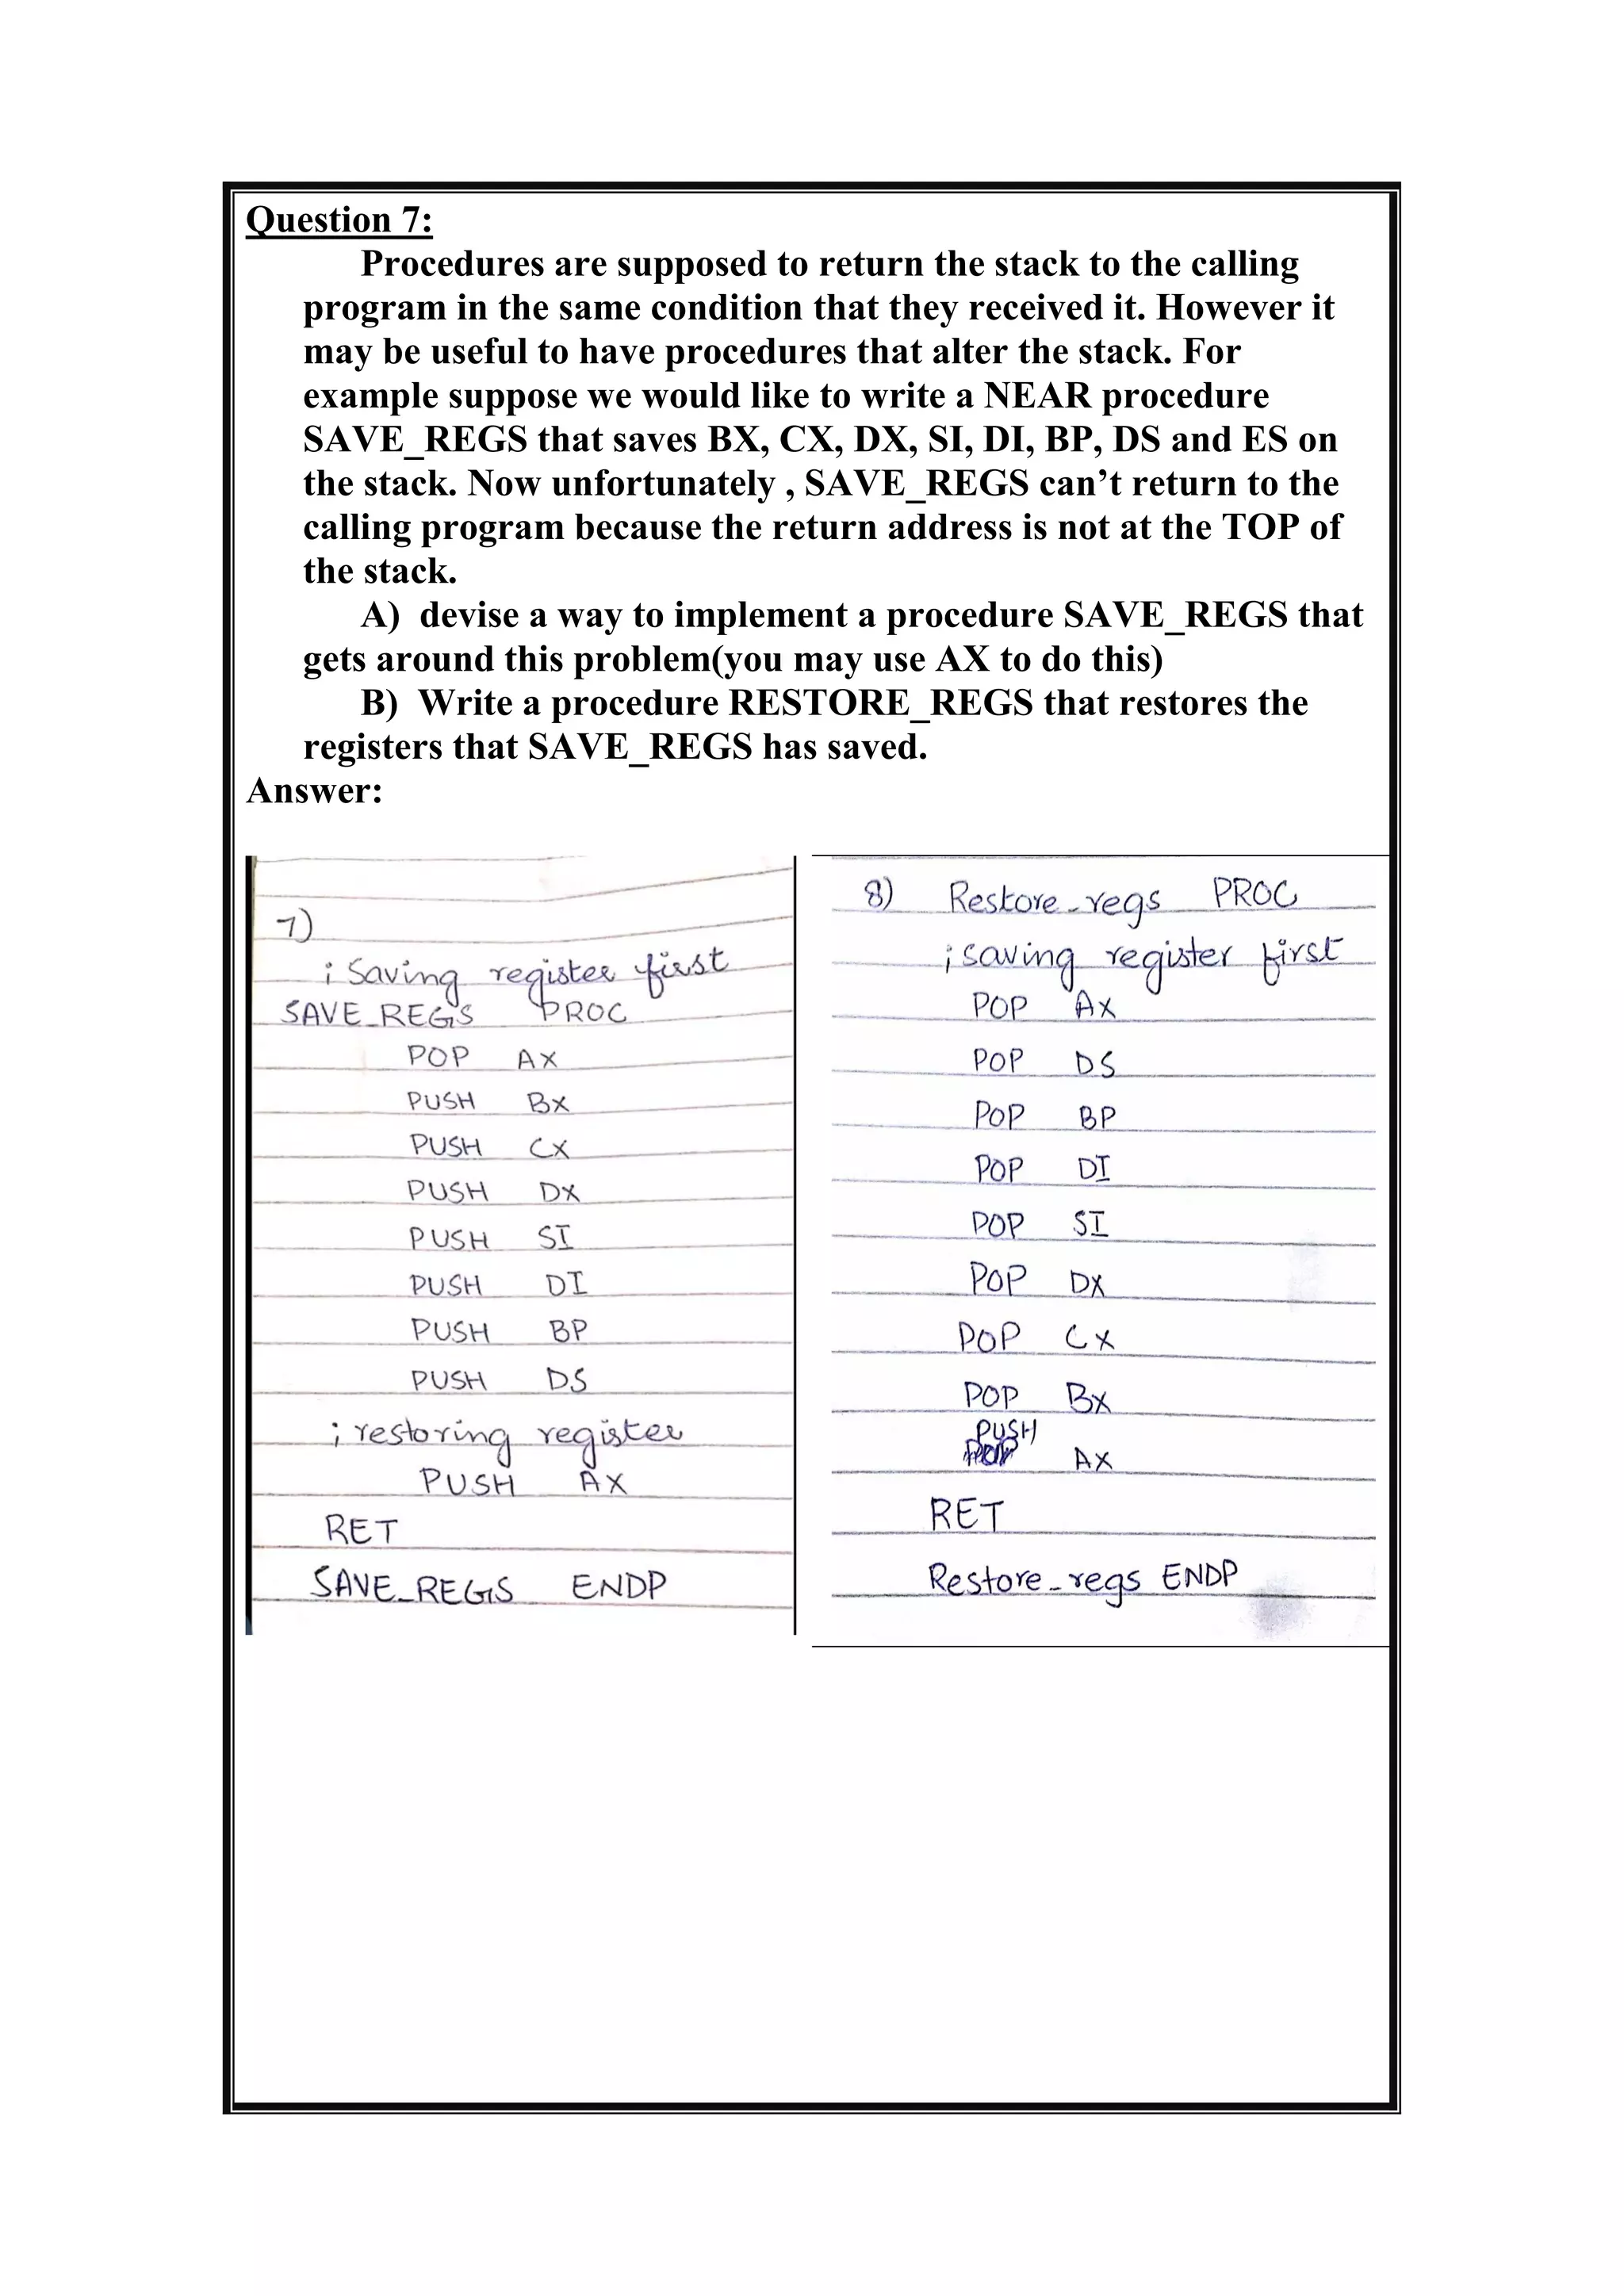 Question 7:
Procedures are supposed to return the stack to the calling
program in the same condition that they received it. However it
may be useful to have procedures that alter the stack. For
example suppose we would like to write a NEAR procedure
SAVE_REGS that saves BX, CX, DX, SI, DI, BP, DS and ES on
the stack. Now unfortunately , SAVE_REGS can’t return to the
calling program because the return address is not at the TOP of
the stack.
A) devise a way to implement a procedure SAVE_REGS that
gets around this problem(you may use AX to do this)
B) Write a procedure RESTORE_REGS that restores the
registers that SAVE_REGS has saved.
Answer:
7)
; Saving register first
SAVE_REGS PROC
POP AX
PUSH BX
PUSH CX
PUSH DX
PUSH SI
PUSH DI
PUSH BP
PUSH DS
; restoring register
PUSH AX
RET
SAVE_REGS ENDP
8) Restore_regs PROC
; saving register first
POP AX
POP DS
POP BP
POP DI
POP SI
POP DX
POP CX
POP BX
PUSH AX
RET
Restore_regs ENDP